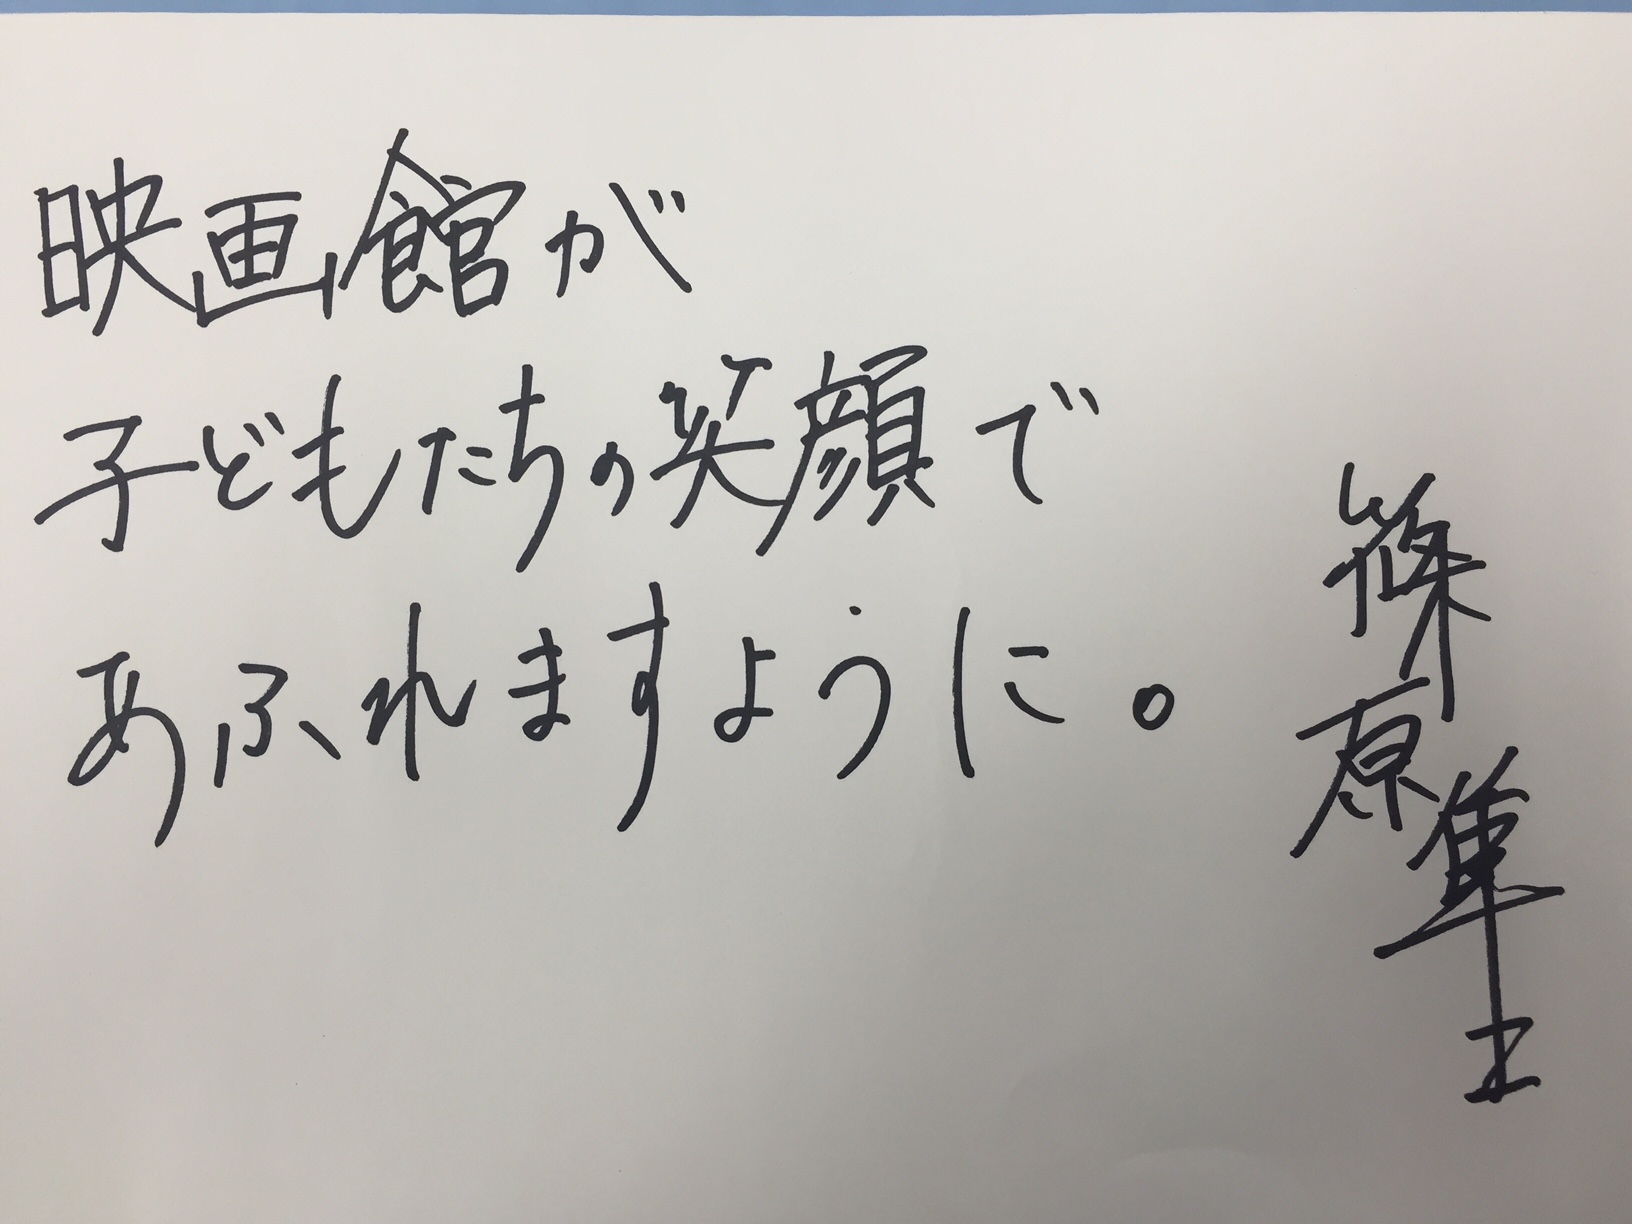 映画館が
子どもたちの笑顔で
あふれますように。
篠原隼士